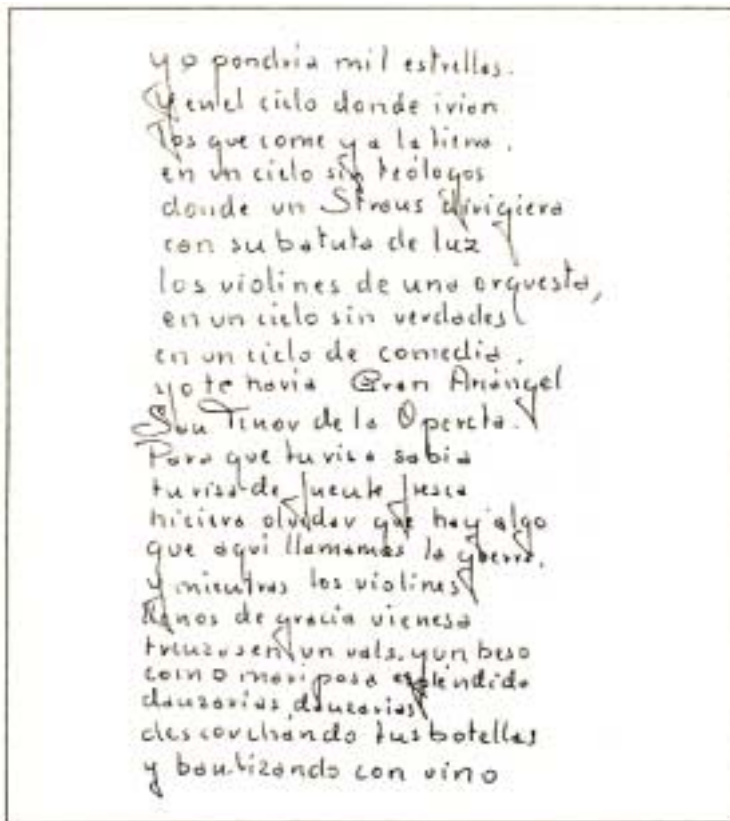 yo pondria mil estrellas.
Y en el cielo donde irian
los que come ya la tierra,
en un cielo sin teólogos
donde un Straus dirigiera
con su batuta de luz
los violines de una orquesta,
en un cielo sin verdades
en un cielo de comedia,
yo te haria Gran Arcángel
San Tenor de la Opereta.
Para que tu risa sabia
tu risa de fuente fresca
hiciera olvidar que hay algo
que aqui llamamos la guerra,
y mientras los violines
llenos de gracia vienesa
trenzasen un vals, y un beso
como mariposa espléndida
danzarias, danzarias
descorchando tus botellas
y bautizando con vino